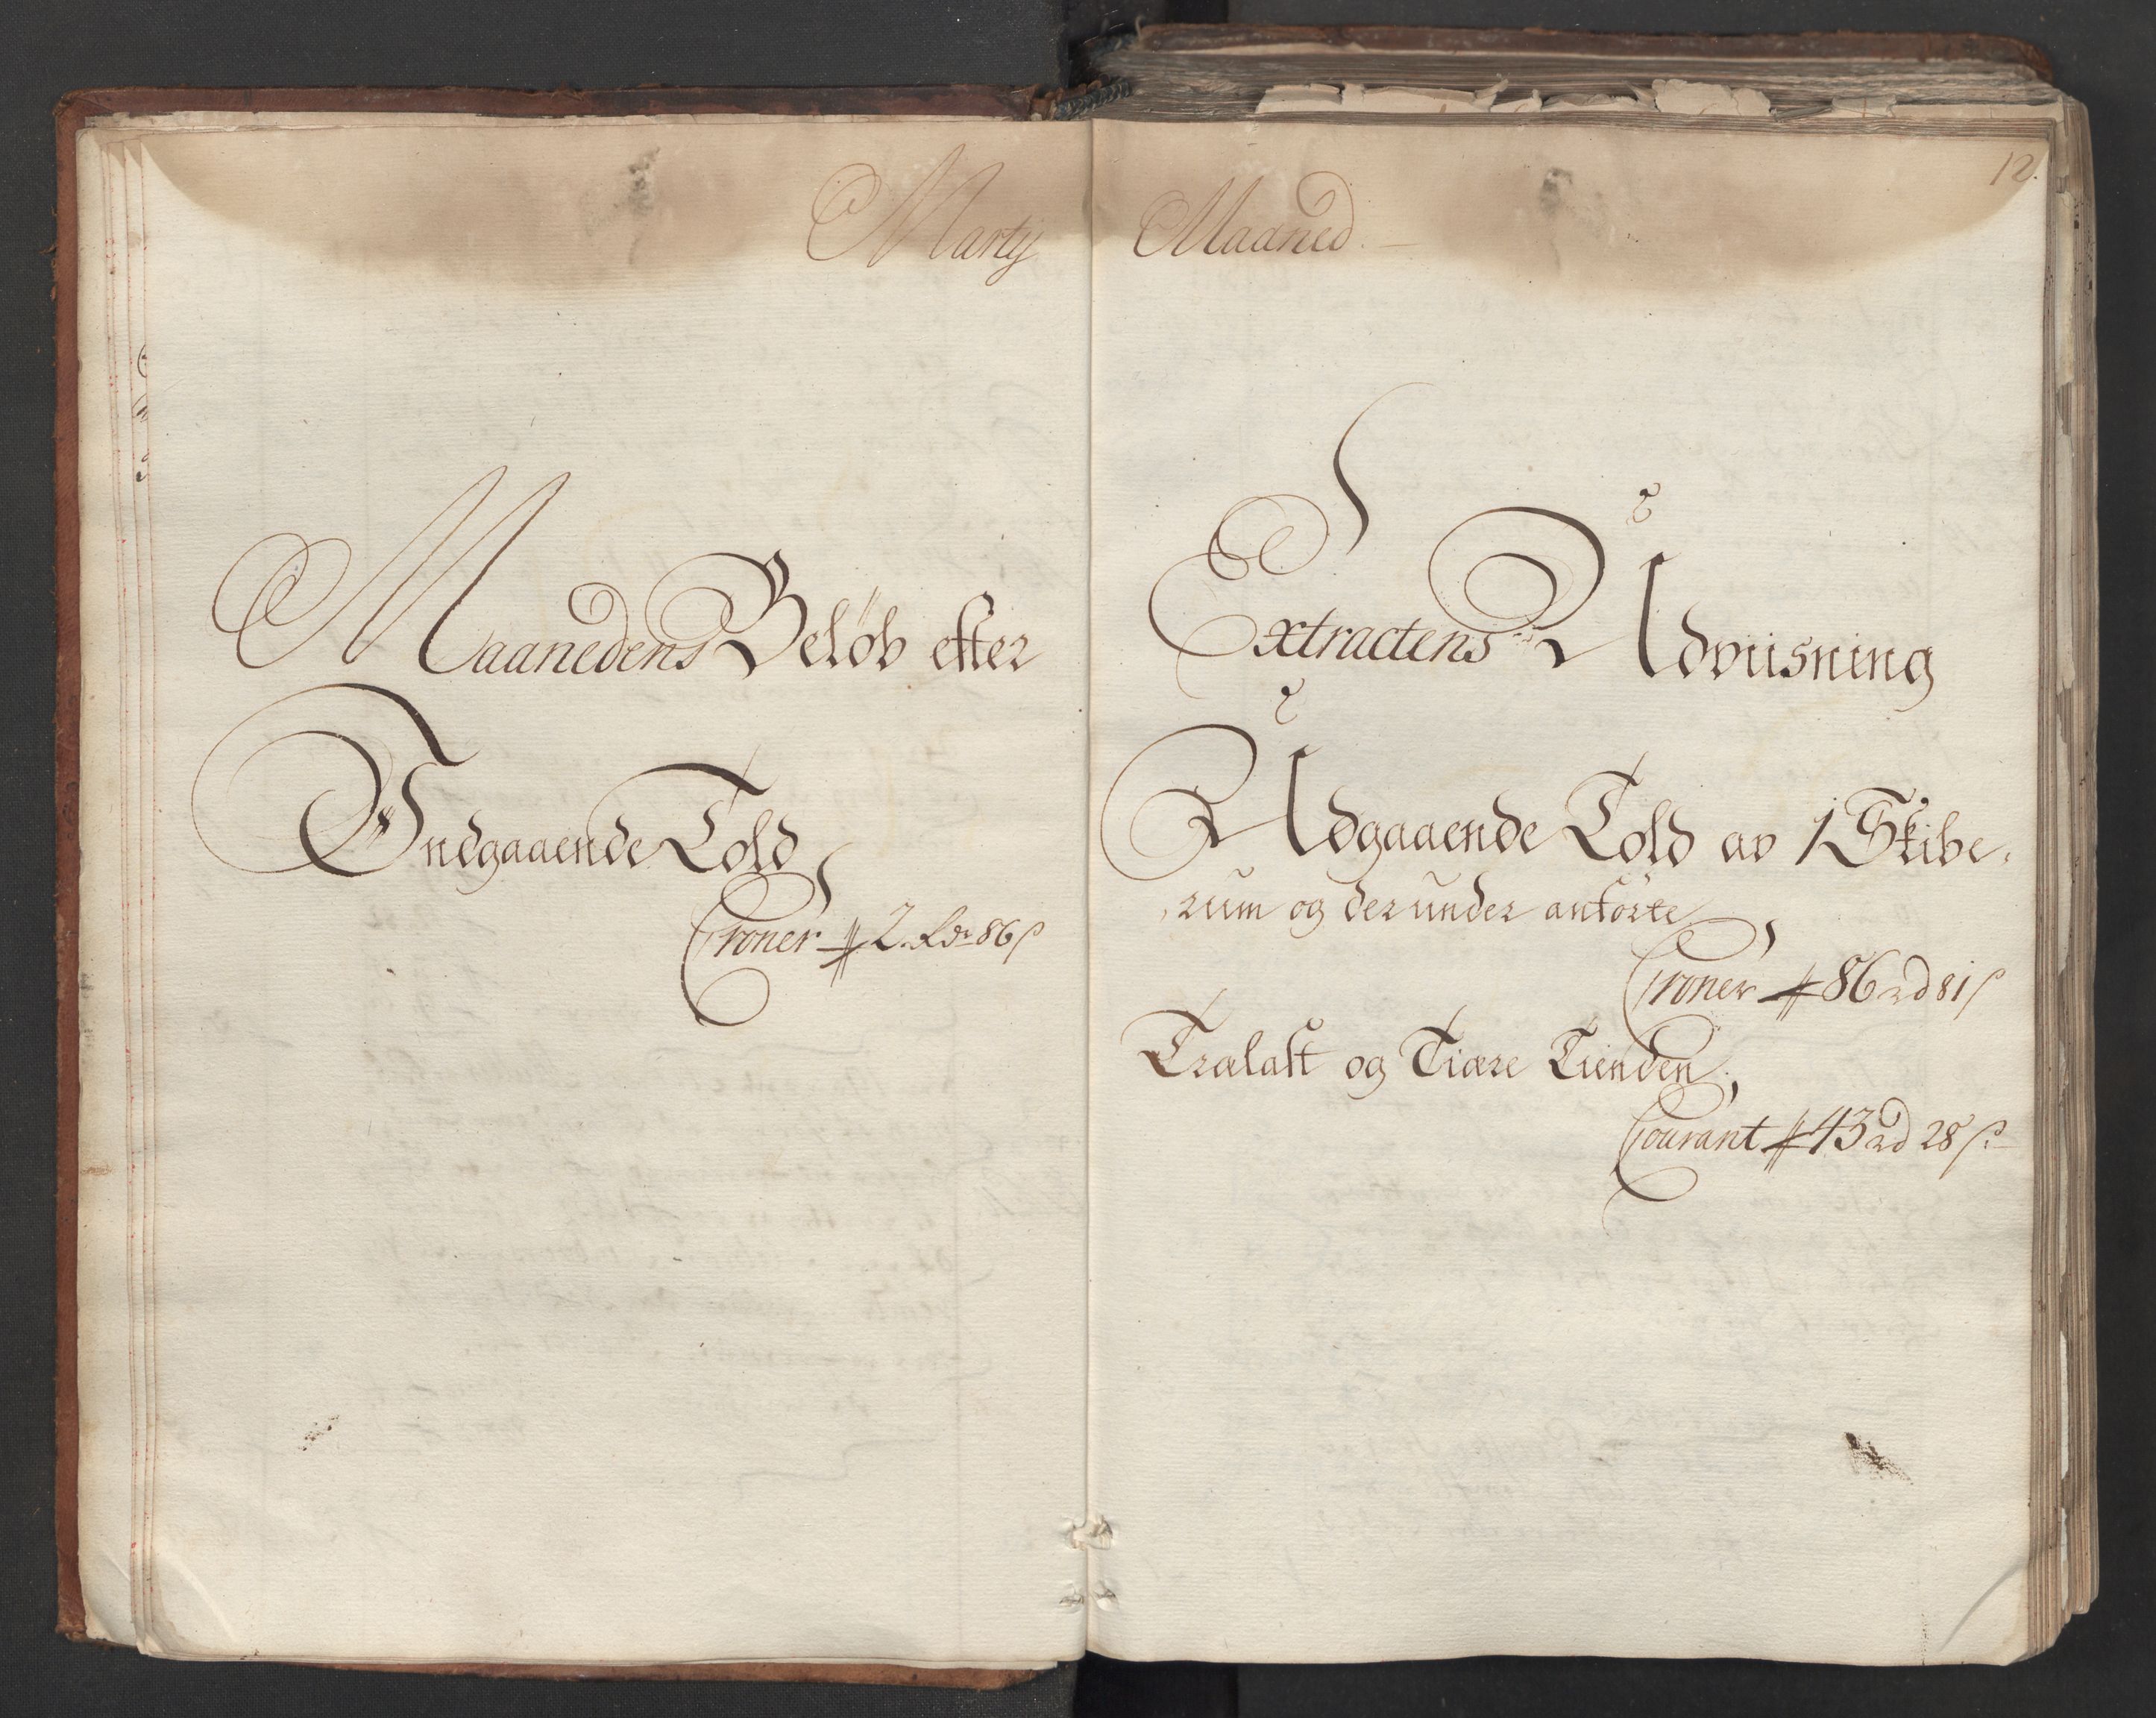 12.
Marty Maaned.
Maanedens Beløb efter
Indgaaende Told
Croner # 2. Rdr 86 ß
Extractens Udviisning
Udgaaende Told av 1 Skibe,
,rum og derunder anførte
Croner # 86 rd 81 ß
Trælast og Tiære Tienden,
Courant # 43 rd 28 ß.